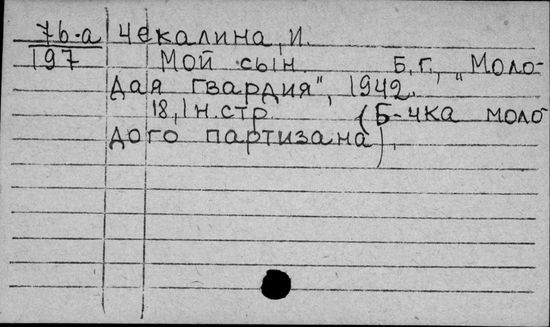 7b-a Чекалина, И.
197 Мой сын Б.г., „Моло-
дая гвардия", 1942.
18, 1 н.стр. (Б-чка моло-
дого партизана).